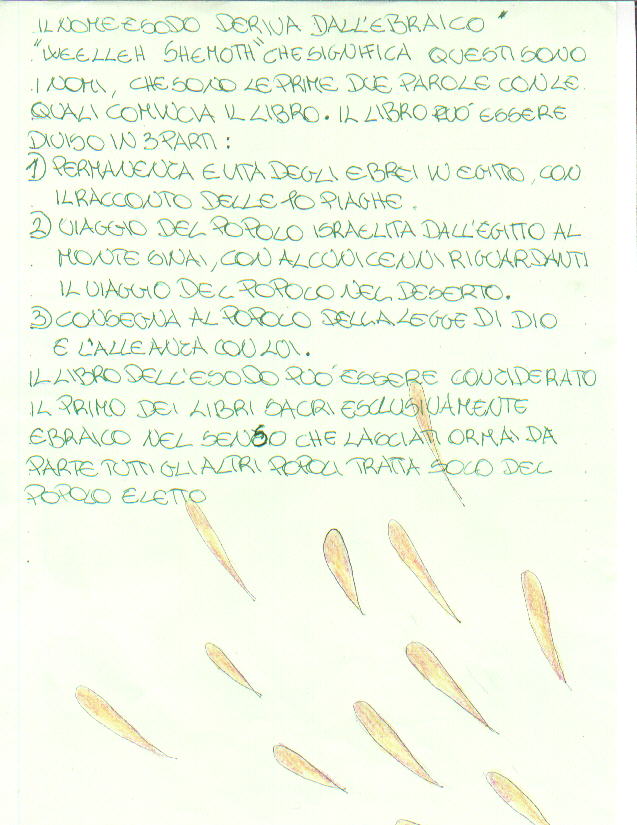 IL NOME ESODO DERIVA DALL'EBRAICO "
"WEELLEH SHEMOTH" CHE SIGNIFICA QUESTI SONO
I NOMI, CHE SONO LE PRIME DUE PAROLE CON LE
QUALI COMINCIA IL LIBRO. IL LIBRO PUO' ESSERE
DIVISO IN 3 PARTI:
1) PERMANENZA E VITA DEGLI EBREI IN EGITTO, CON
IL RACCONTO DELLE 10 PIAGHE.
2) VIAGGIO DEL POPOLO ISRAELITA DALL'EGITTO AL
MONTE SINAI, CON ALCUNI CENNI RIGUARDANTI
IL VIAGGIO DEL POPOLO NEL DESERTO.
3) CONSEGNA AL POPOLO DELLA LEGGE DI DIO
E L'ALLEANZA CON LUI.
IL LIBRO DELL'ESODO PUO' ESSERE CONSIDERATO
IL PRIMO DEI LIBRI SACRI ESCLUSIVAMENTE
EBRAICO NEL SENSO CHE LASCIATI ORMAI DA
PARTE TUTTI GLI ALTRI POPOLI TRATTA SOLO DEL
POPOLO ELETTO